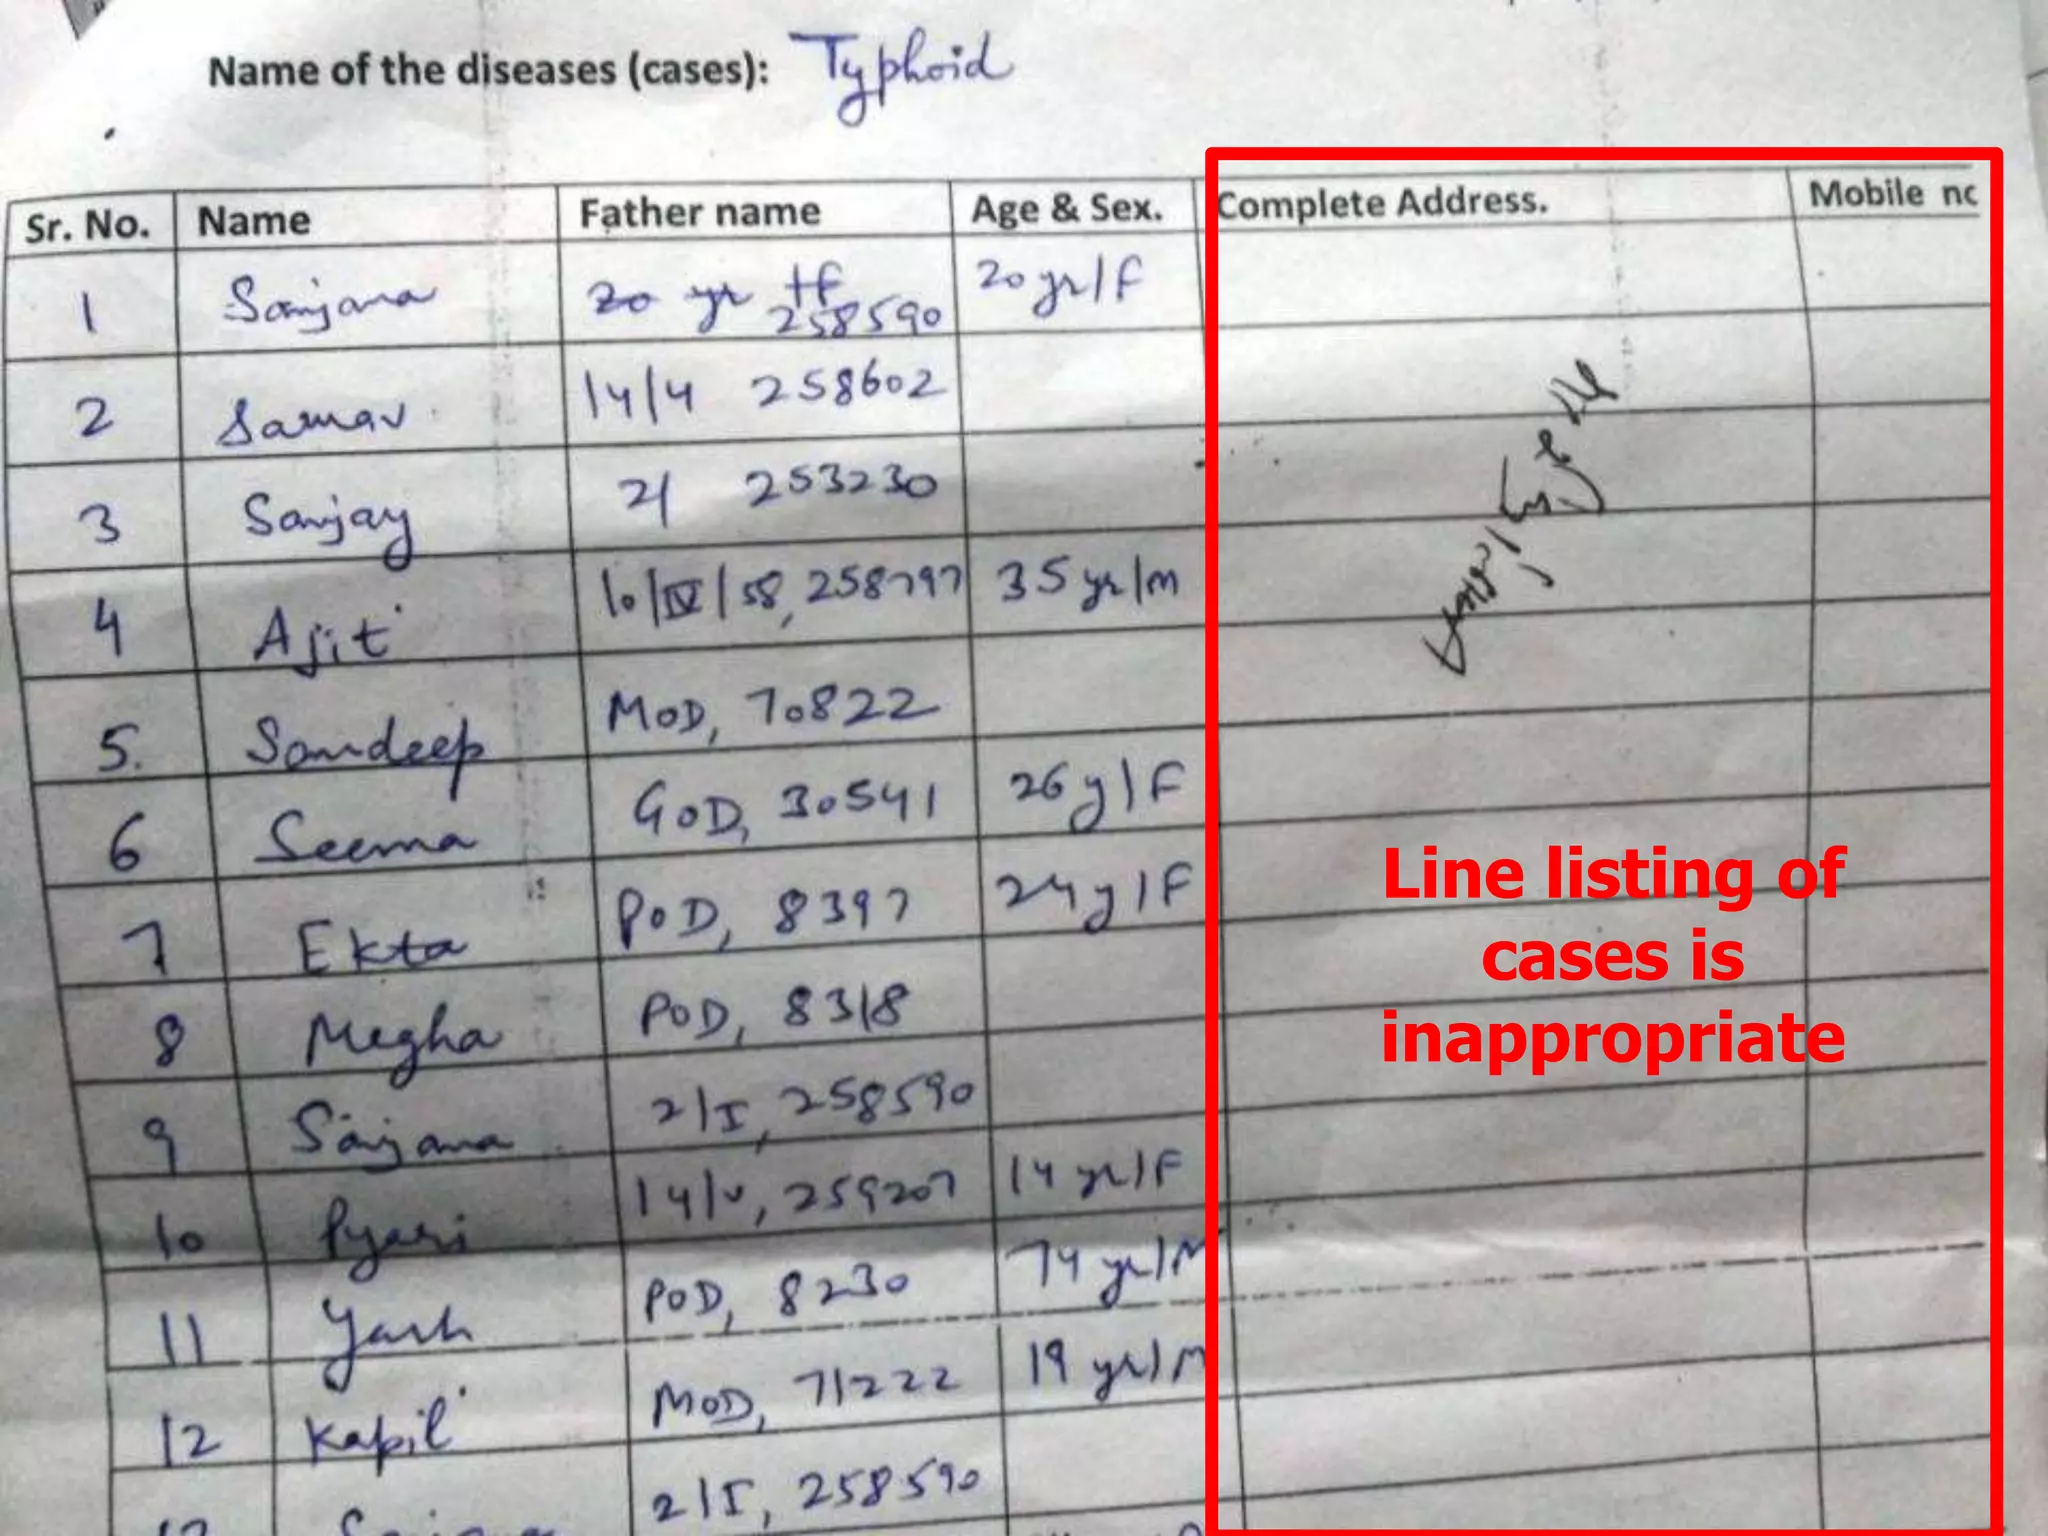 Name of the diseases (cases): Typhoid
Sr. No. Name Father name Age & Sex. Complete Address. Mobile no
1 Sanjana 20 yr F 258590 20 yr/F
2 14/4 258602
3 Sanjay 21 253230
4 Ajit 10/IV/58, 258797 35 yr/m
5. Sandeep MOD, 70822
6 Seema GOD, 30541 26 y/F
7 Ekta POD, 8397 24 y/F
8 Megha POD, 8318
9 Sanjana 2/I, 258590
10 Pyari 14/v, 259207 14 yr/F
11 Yash POD, 8230 74 yr/M
12 Kapil MOD, 71222 19 yr/M
2/I, 258590
Line listing of
cases is
inappropriate